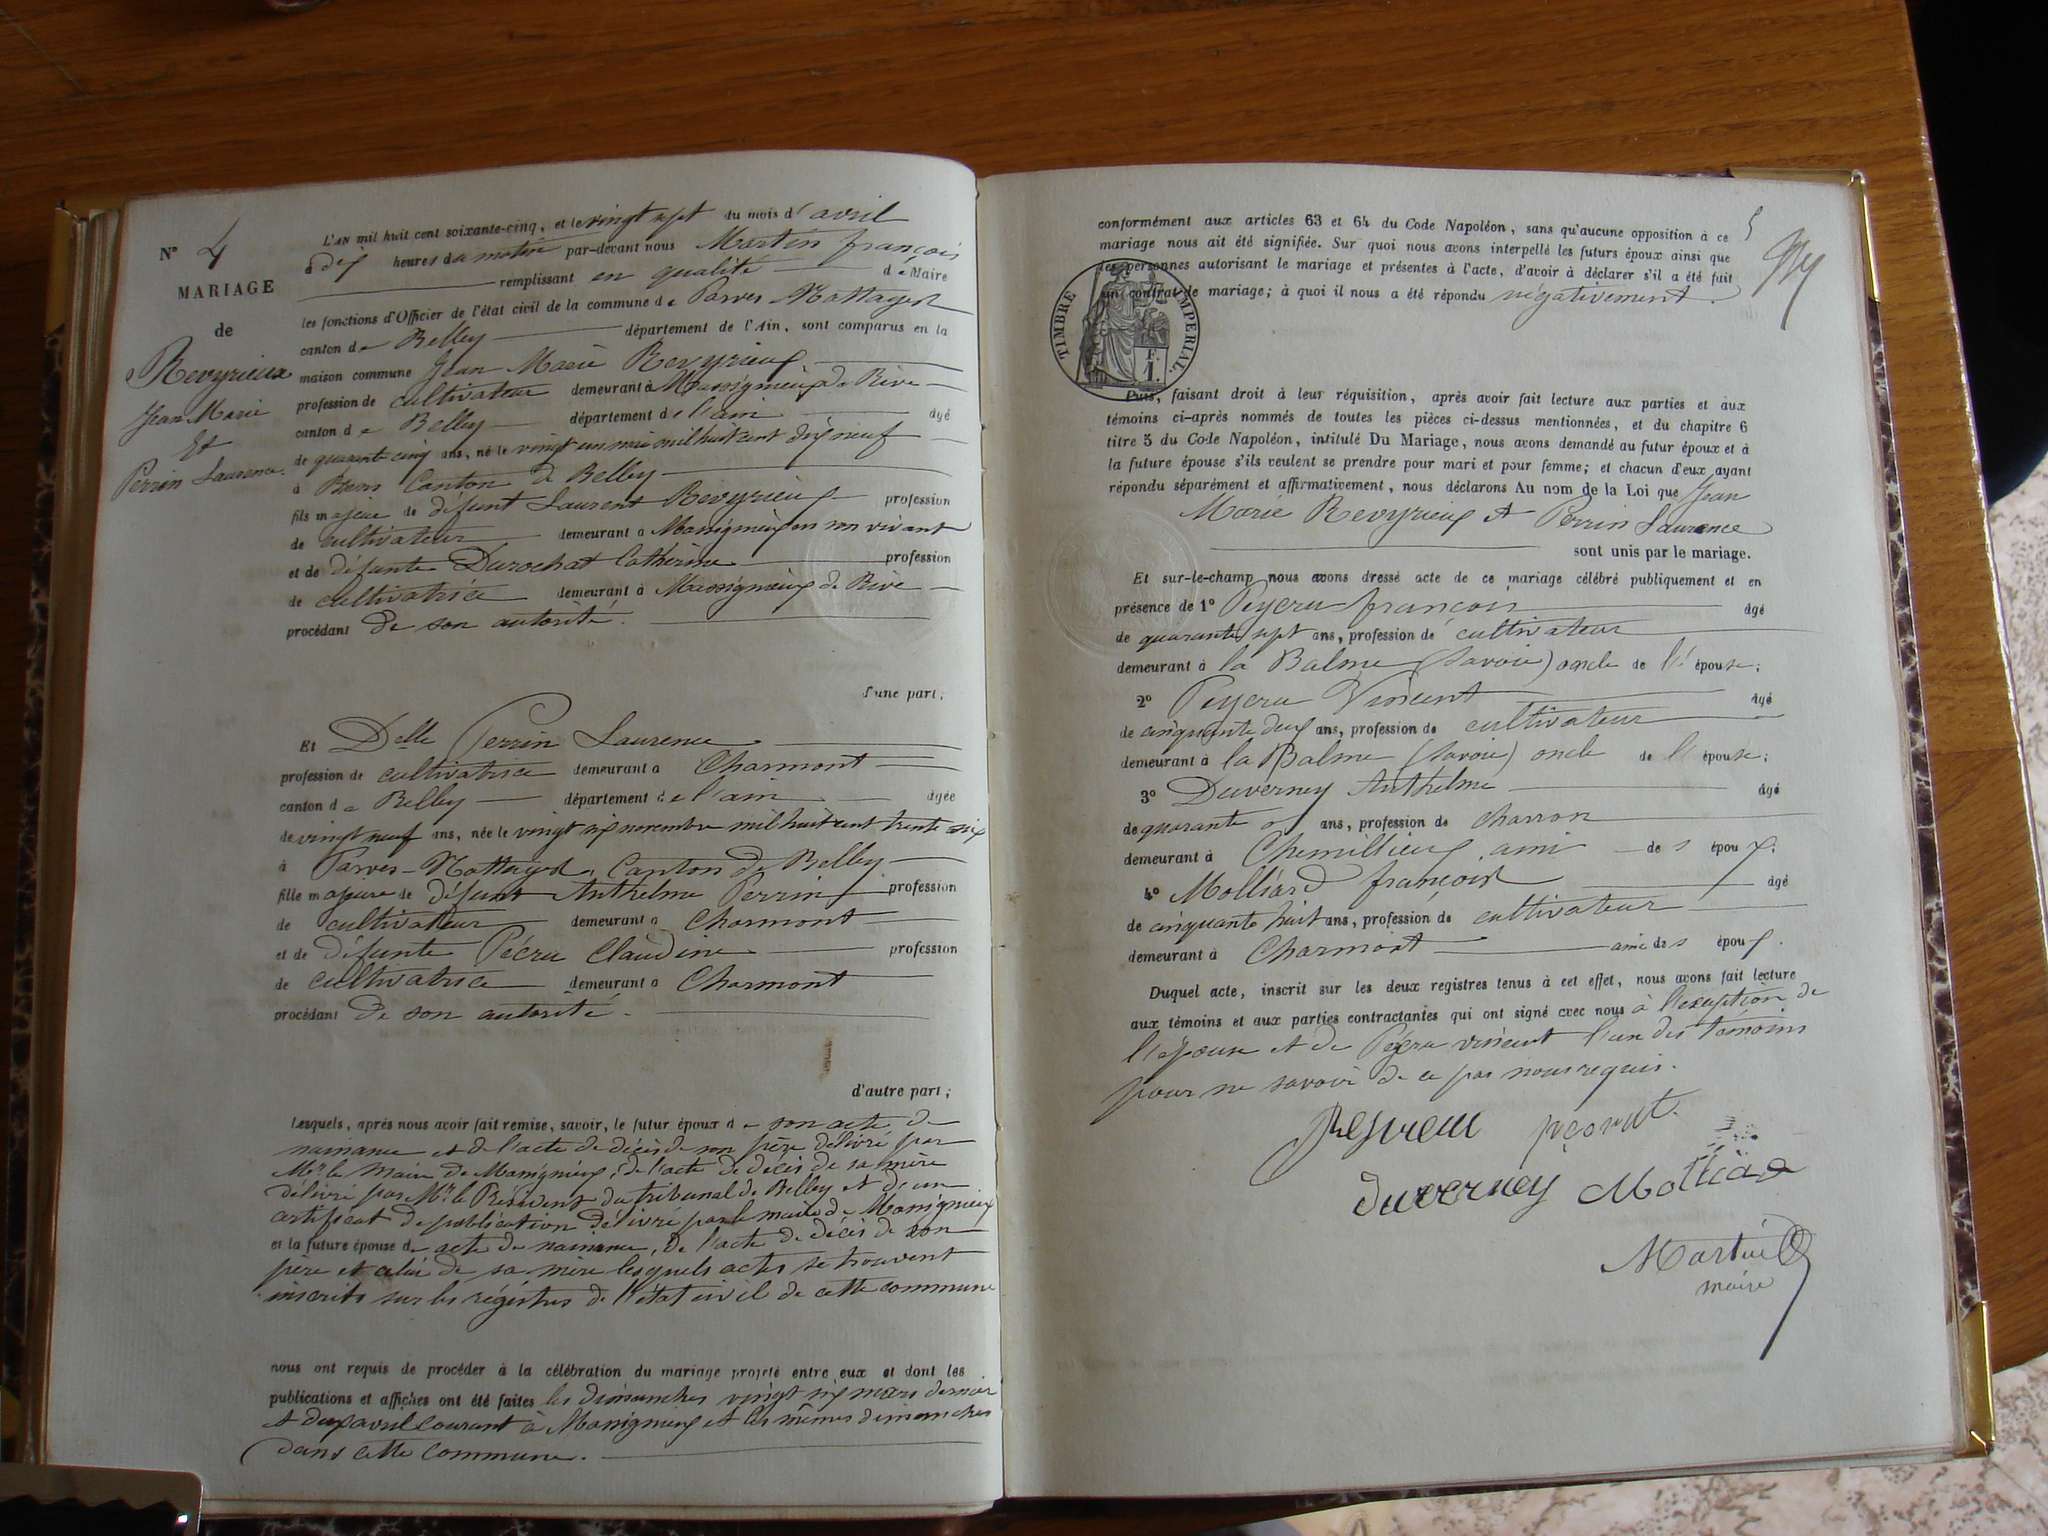 N° 4
MARIAGE
de
Revyrieux
Jean Marie
Et
Perrin Laurence.
L'AN mil huit cent soixante-cinq, et le vingt sept du mois d'avril
à dix heures du matin par-devant nous Martin françois
remplissant en qualité de Maire
les fonctions d'Officier de l'état civil de la commune de Parves Nattages
canton de Belley département de l'Ain, sont comparus en la
maison commune Jean Marie Revyrieux
profession de cultivateur demeurant à Massignieux de Rive
canton de Belley département de l'ain âgé
de quarante cinq ans, né le vingt un mai mil huit cent dix neuf
à Bons Canton de Belley
fils majeur de défunt Laurent Revyrieux profession
de cultivateur demeurant à Massignieux en son vivant
et de défunte Durochat Catherine profession
de cultivatrice demeurant à Massignieux de Rive
procédant de son autorité.
d'une part;
Et Delle Perrin Laurence
profession de cultivatrice demeurant à Charmont
canton de Belley département de l'ain âgée
de vingt neuf ans, née le vingt six novembre mil huit cent trente six
à Parves-Nattages, Canton de Belley
fille majeure de défunt Anthelme Perrin profession
de cultivateur demeurant à Charmont
et de défunte Pécru Claudine profession
de cultivatrice demeurant à Charmont
procédant de son autorité.
d'autre part;
Lesquels, après nous avoir fait remise, savoir, le futur époux de son acte de
naissance et de l'acte de décès de son père délivré par
Mr le Maire de Massignieux, de l'acte de décès de sa mère
délivré par Mr le Président du tribunal de Belley et d'un
certificat de publication délivré par le maire de Massignieux
et la future épouse de acte de naissance, de l'acte de décès de son
père et celui de sa mère lesquels actes se trouvent
inscrits sur les régistres de l'état civil de cette commune
nous ont requis de procéder à la célébration du mariage projeté entre eux et dont les
publications et affiches ont été faites les dimanches vingt six mars dernier
et deux avril courant à Massignieux et les mêmes dimanches
dans cette commune.
5
conformément aux articles 63 et 64 du Code Napoléon, sans qu'aucune opposition à ce
mariage nous ait été signifiée. Sur quoi nous avons interpellé les futurs époux ainsi que
les personnes autorisant le mariage et présentes à l'acte, d'avoir à déclarer s'il a été fait
un contrat de mariage; à quoi il nous a été répondu négativement.
TIMBRE IMPERIAL.
Puis, faisant droit à leur réquisition, après avoir fait lecture aux parties et aux
témoins ci-après nommés de toutes les pièces ci-dessus mentionnées, et du chapitre 6
titre 5 du Code Napoléon, intitulé Du Mariage, nous avons demandé au futur époux et à
la future épouse s'ils veulent se prendre pour mari et pour femme; et chacun d'eux ayant
répondu séparément et affirmativement, nous déclarons Au nom de la Loi que Jean
Marie Revyrieux et Perrin Laurence
sont unis par le mariage.
Et sur-le-champ nous avons dressé acte de ce mariage célébré publiquement et en
présence de 1° Peycru françois âgé
de quarante sept ans, profession de cultivateur
demeurant à la Balme (Savoie) oncle de l'épouse;
2° Peycru Vincent âgé
de cinquante deux ans, profession de cultivateur
demeurant à la Balme (Savoie) oncle de l'épouse;
3° Duverney Anthelme âgé
de quarante ans, profession de charron
demeurant à Chemillieux, ami des époux.
4° Molliard françois âgé
de cinquante huit ans, profession de cultivateur
demeurant à Charmont ami des époux.
Duquel acte, inscrit sur les deux registres tenus à cet effet, nous avons fait lecture
aux témoins et aux parties contractantes qui ont signé avec nous à l'exeption de
l'épouse et de Pécru vincent l'un des témoins
pour ne savoir de ce par nous requis.
duverney Molliar
Martin
maire